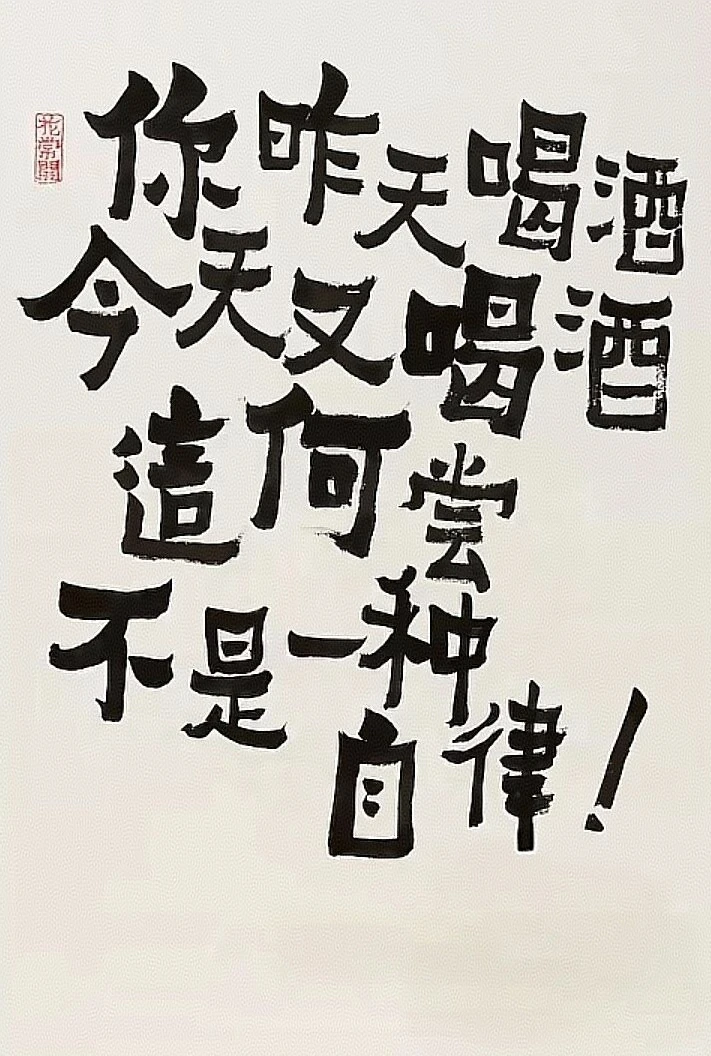 你昨天喝酒
今天又喝酒
這何尝
不是一种
自律！
花常開